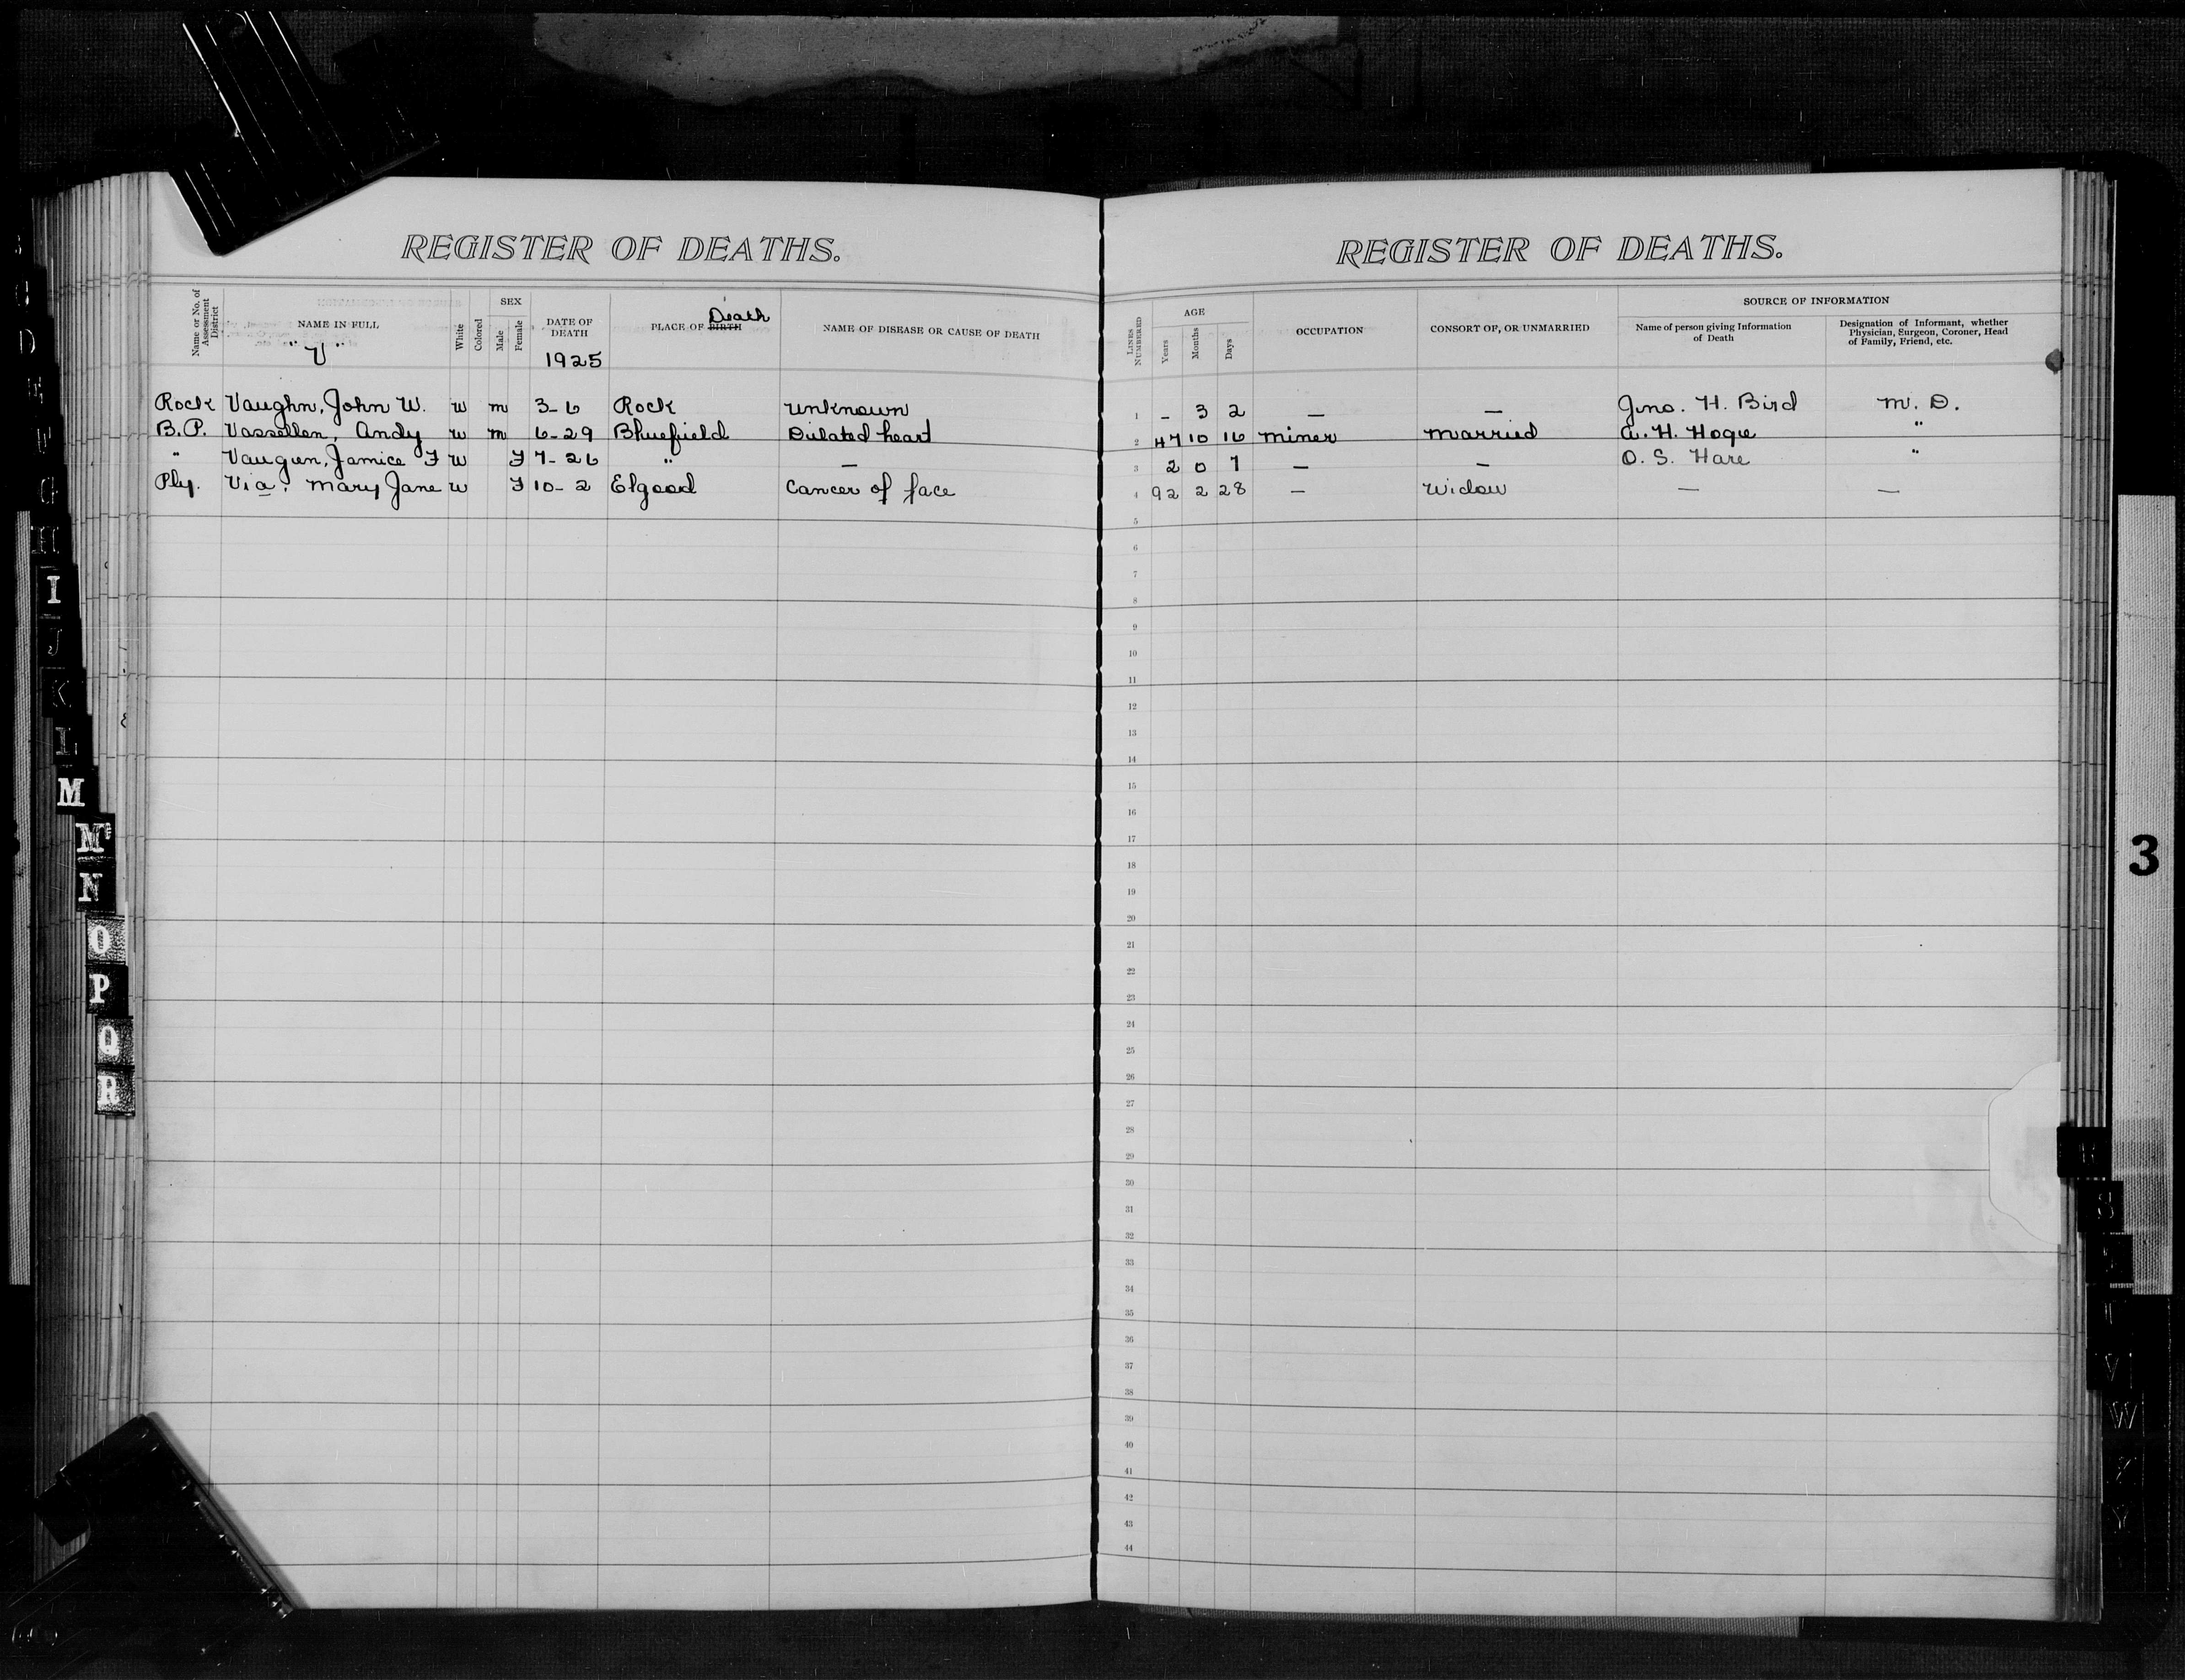 REGISTER OF DEATHS.
REGISTER OF DEATHS.
Name or No. of Assessment District
NAME IN FULL
"V"
White
Colored
SEX
Male
Female
DATE OF DEATH
1925
PLACE OF BIRTH Death
NAME OF DISEASE OR CAUSE OF DEATH
LINES NUMBERED
AGE
Years
Months
Days
OCCUPATION
CONSORT OF, OR UNMARRIED
SOURCE OF INFORMATION
Name of person giving Information of Death
Designation of Informant, whether Physician, Surgeon, Coroner, Head of Family, Friend, etc.
Rock Vaughn, John W. w m 3-6 Rock unknown 1 - 3 2 — — Jno. H. Bird M. D.
B.P. Vassellen, Andy w m 6-29 Bluefield Dilated heart 2 47 10 16 miner married A. H. Hoge "
" Vaugen, Janice F w F 7-26 " — 3 2 0 7 — — O. S. Hare "
Ply. Via, Mary Jane w F 10-2 Elgood Cancer of face 4 92 2 28 — Widow — —
5
6
7
8
9
10
11
12
13
14
15
16
17
18
19
20
21
22
23
24
25
26
27
28
29
30
31
32
33
34
35
36
37
38
39
40
41
42
43
44
D
G
H
I
J
K
L
M
Mc
N
O
P
Q
R
3
S
V
W